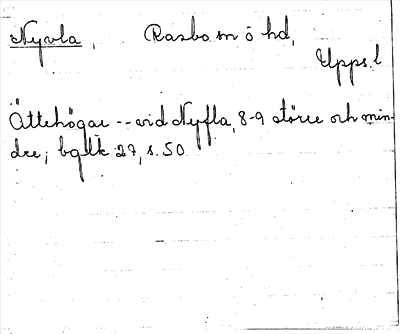 Nyvla, Rasbo sn o hd,
Upps.l
Ättehögar -- vid Nyfla, 8-9 större och min-
dre; bglk 27, s. 50